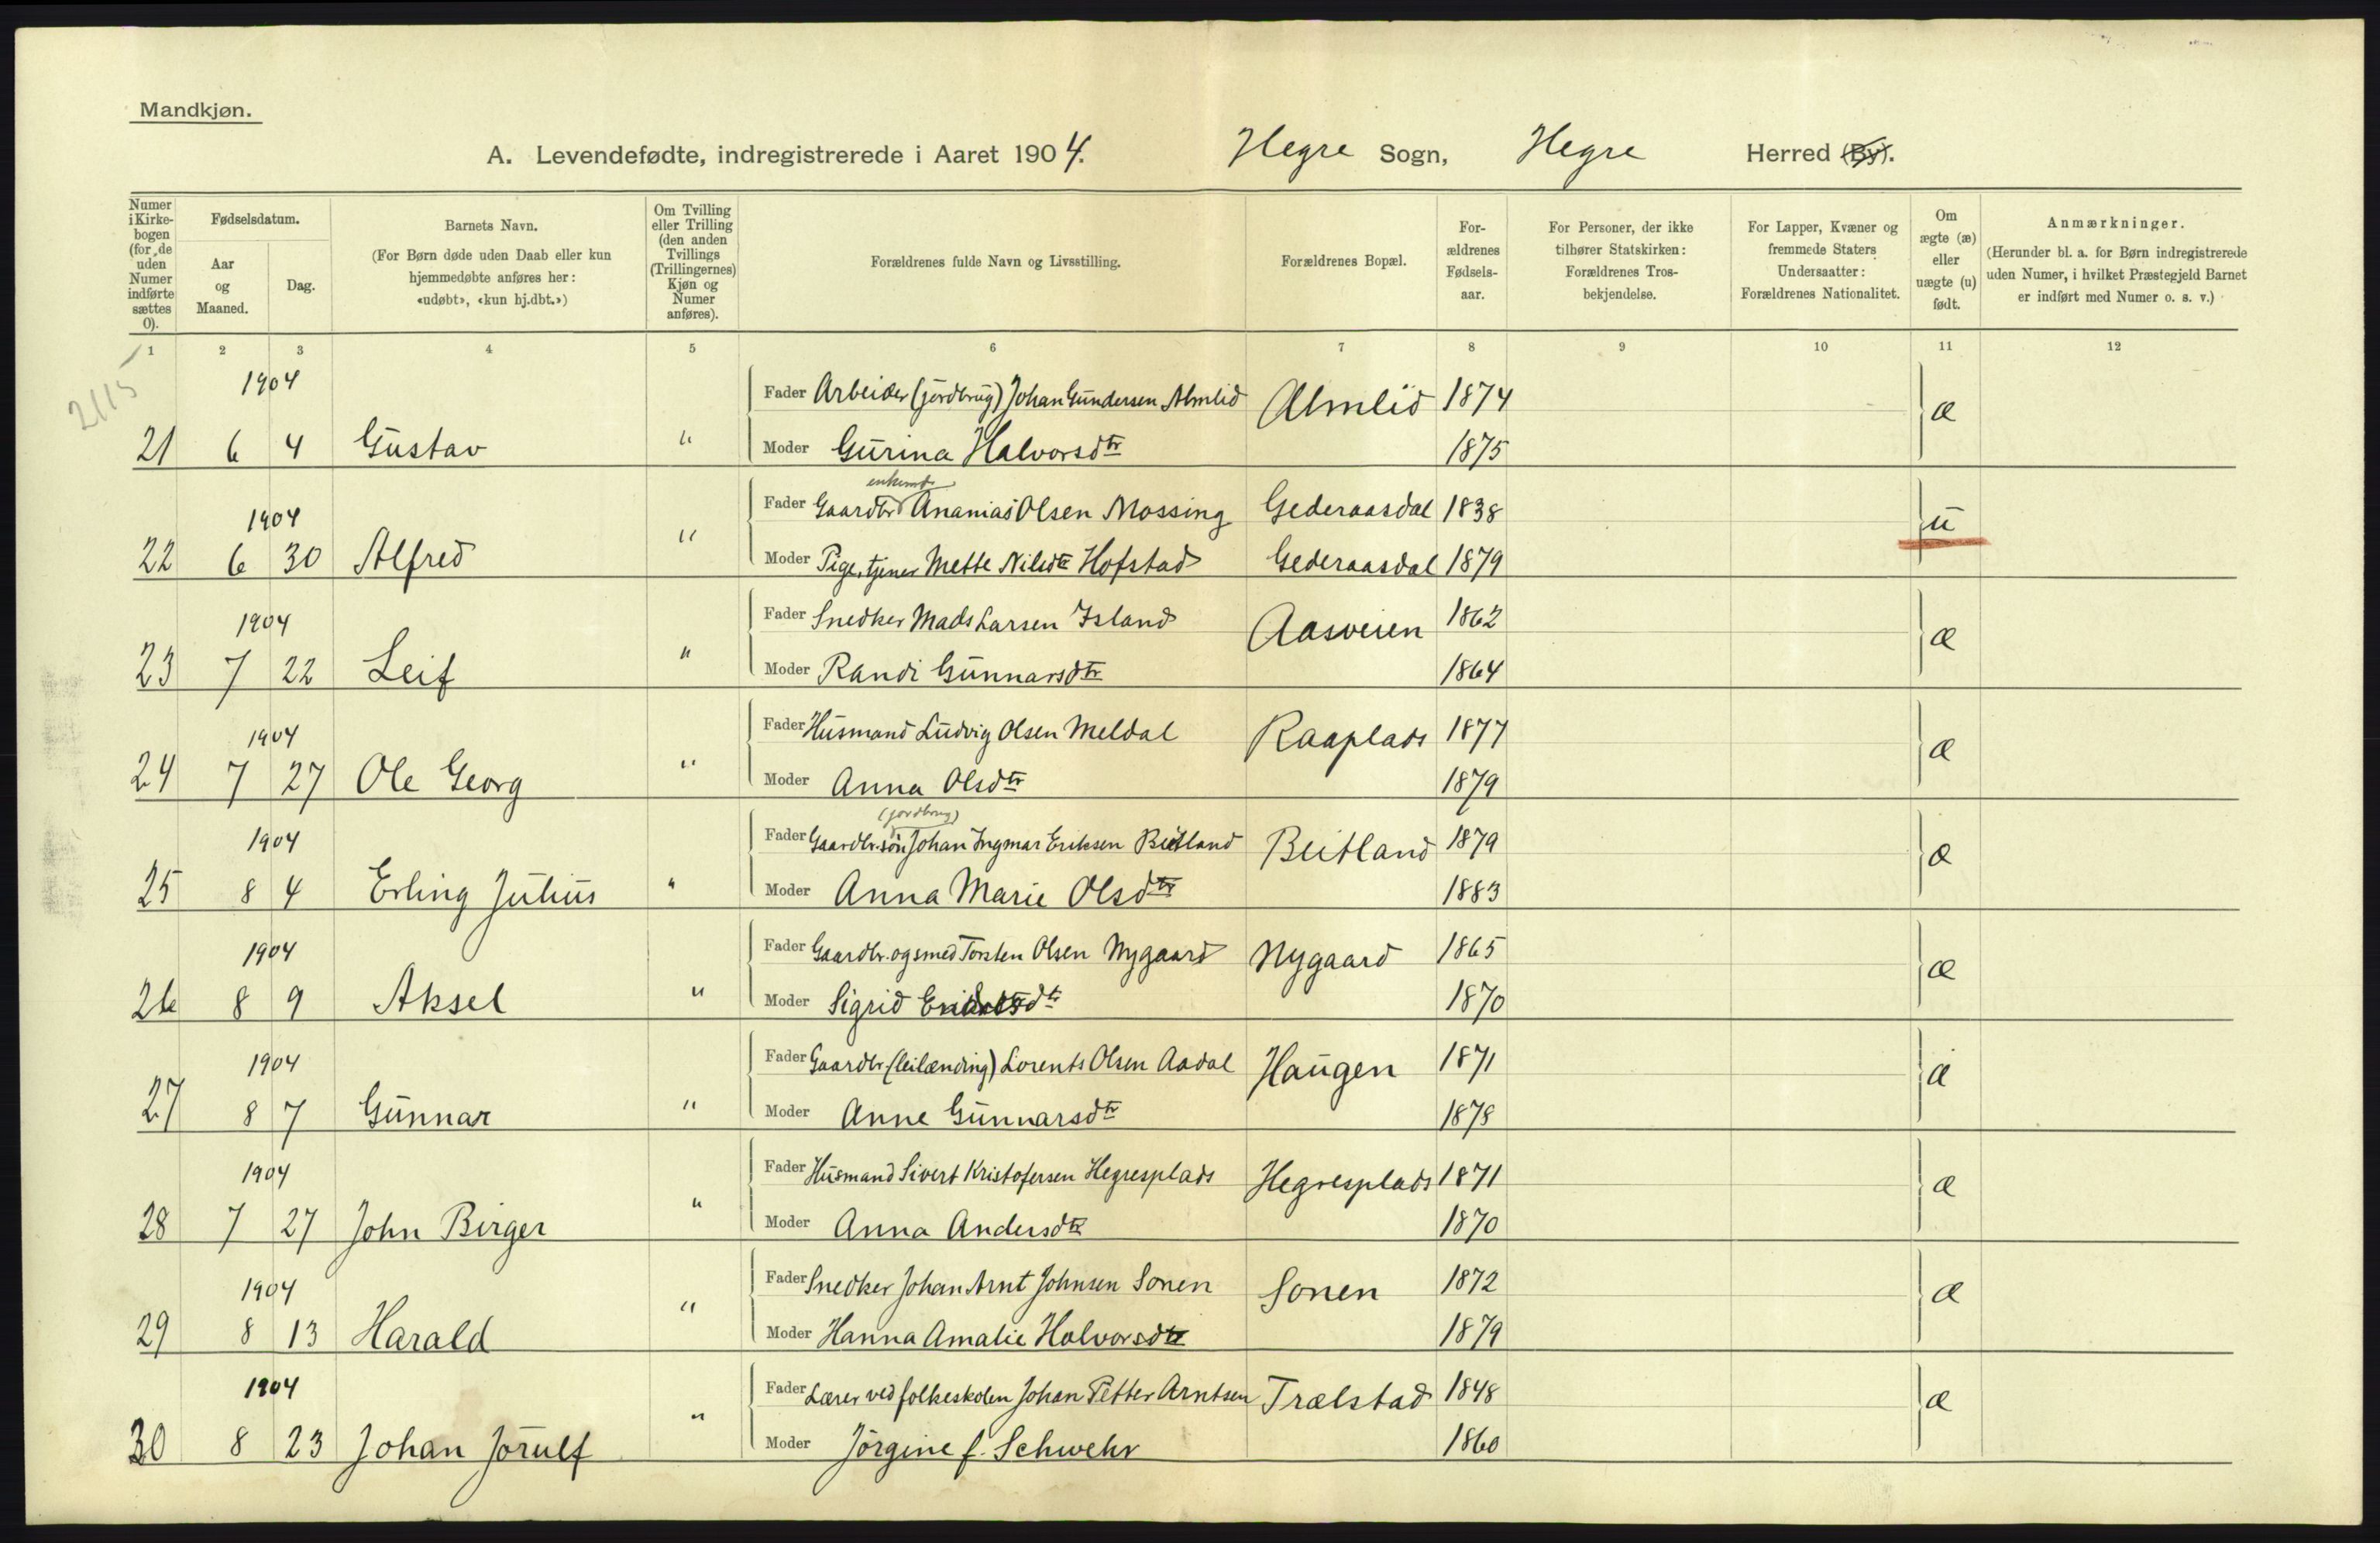 Mandkjøn.
A. Levendefødte, indregistrerede i Aaret 1904. Hegre Sogn, Hegre Herred (By).
Numer i Kirkebogen (for de uden Numer indførte sættes 0).
Fødselsdatum.
Aar og Maaned.
Dag.
Barnets Navn.
(For Børn døde uden Daab eller kun hjemmedøbte anføres her: «udøbt», «kun hj.dbt.»)
Om Tvilling eller Trilling (den anden Tvillings (Trillingernes) Kjøn og Numer anføres).
Forældrenes fulde Navn og Livsstilling.
Forældrenes Bopæl.
Forældrenes Fødselsaar.
For Personer, der ikke tilhører Statskirken: Forældrenes Trosbekjendelse.
For Lapper, Kvæner og fremmede Staters Undersaatter: Forældrenes Nationalitet.
Om ægte (æ) eller uægte (u) født.
Anmærkninger.
(Herunder bl. a. for Børn indregistrerede uden Numer, i hvilket Præstegjeld Barnet er indført med Numer o. s. v.)
1 2 3 4 5 6 7 8 9 10 11 12
2115
1904 Fader Arbeider (jordbrug) Johan Gundersen Almlid Almlid 1874 æ
21 6 4 Gustav " Moder Gurina Halvorsdtr 1875
enkemd
1904 Fader Gaardbr Ananias Olsen Mossing Gederaasdal 1838 u
22 6 30 Alfred " Moder Pige, tjener Mette Nilsdtr Hofstad Gederaasdal 1879
1904 Fader Snedker Mads Larsen Island Aasveien 1862 æ
23 7 22 Leif " Moder Randi Gunnarsdtr 1864
1904 Fader Husmand Ludvig Olsen Meldal Raaplads 1877 æ
24 7 27 Ole Georg " Moder Anna Olsdtr 1879
(jordbrug)
1904 Fader Gaardbr.søn Johan Ingmar Eriksen Beitland Beitland 1879 æ
25 8 4 Erling Julius " Moder Anna Marie Olsdtr 1883
1904 Fader Gaardbr. og smed Torsten Olsen Nygaard Nygaard 1865 æ
26 8 9 Aksel " Moder Sigrid 1870
1904 Fader Gaardbr. (leilænding) Lorents Olsen Aadal Haugen 1871 æ
27 8 7 Gunnar " Moder Anne Gunnarsdtr 1878
1904 Fader Husmand Sivert Kristofersen Hegresplads Hegresplads 1871 æ
28 7 27 John Birger " Moder Anna Andersdtr 1870
1904 Fader Snedker Johan Arnt Johnsen Sonen Sonen 1872 æ
29 8 13 Harald " Moder Hanna Amalie Halvorsdtr 1879
1904 Fader Lærer ved folkeskolen Johan Petter Arntsen Trælstad 1848 æ
30 8 23 Johan Jørulf " Moder Jørgine f. Schwehr 1860